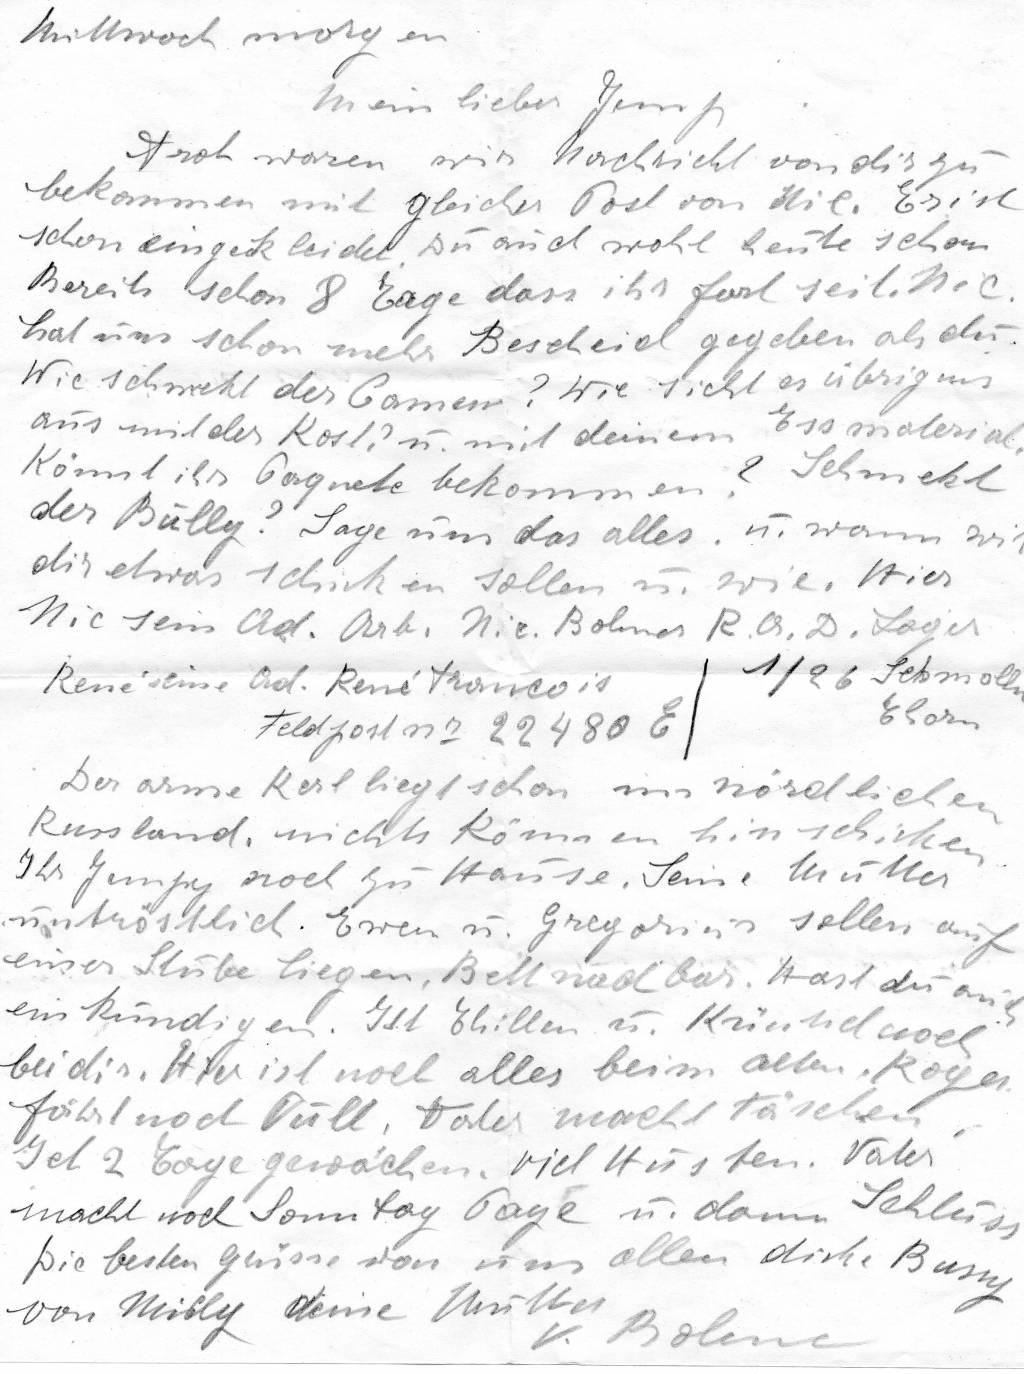 Mittwoch morgen
Mein lieber Jemp
Froh waren wir Nachricht von dir zu
bekommen mit gleicher Post von Nic. Er ist
schon eingekleidet. Du auch wohl heute schon
Bereits schon 8 Tage dass ihr fort seit. Nic.
hat uns schon mehr Bescheid gegeben als du.
Wie schmekt der ? Wie sieht es übrigens
aus mit der Kost? u. mit deinem Essmaterial.
Könnt ihr Paquete bekommen? Schmekt
der Bully? Sage uns das alles. u. wann wir
dir etwas schicken sollen u. wie. Hier
Nic sein Ad. Arb. Nic. Bohner R.A.D. Lager
1/26 Schmolln
Thorn
René seine Ad. René Francois
Feldpost nr 22480 E
Der arme Kerl liegt schon im nördlichen
Russland. nichts können hinschicken
Ihr Jempy noch zu Hause. Seine Mutter
untröstlich. Ewen u. Gregorius sollen auf
einer Stube liegen, Bett nachbar. Hast du auch
ein kündigen. Ist Thillen u. noch
bei dir. Hier ist noch alles beim alten. Roger
fährt noch Vater macht Täschen
Ich 2 Tage gewaschen. viel Husten. Vater
macht noch Sonntag Page u. dann Schluss
Die besten Grüsse von uns allen dicke Bussy
von Milly deine Mutter
V. Bohne